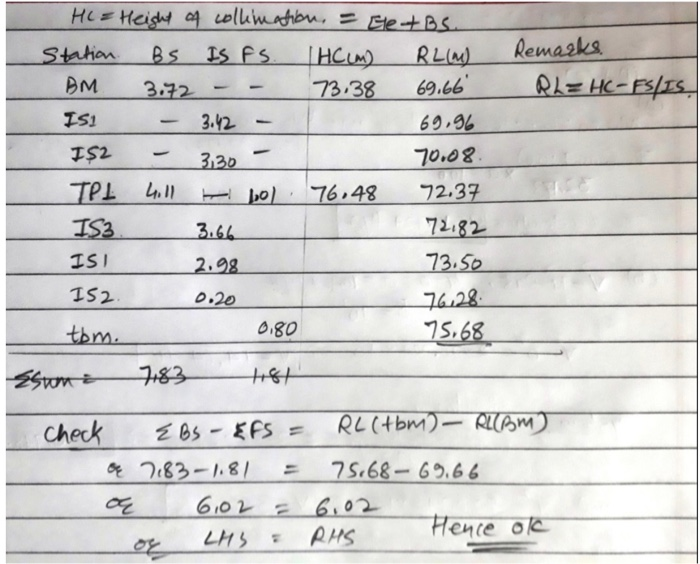 HC = Height of collimation. = Ele + BS.
Station BS IS FS HC(m) RL(M) Remarks.
BM 3.72 - - 73.38 69.66 RL = HC - FS/IS.
IS1 - 3.42 - 69.96
IS2 - 3.30 - 70.08.
TP1 4.11 - 1.01 76.48 72.37
IS3 3.66 72.82
IS1 2.98 73.50
IS2. 0.20 76.28.
tbm. 0.80 75.68
ΣSum = 7.83 1.81
Check Σ BS - ΣFS = RL(tbm) - RL(Bm)
or 7.83 - 1.81 = 75.68 - 69.66
or 6.02 = 6.02
or LHS = RHS Hence ok